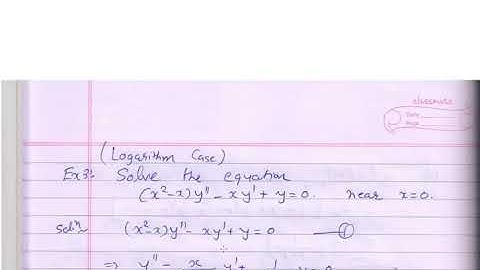 classmate
Date
Page
(Logarithm Case)
Ex3:- Solve the equation
(x²-x)y" - xy' + y = 0. near x=0.
Solⁿ (x²-x)y" - xy' + y = 0 — ①
⇒ y" - x y' + 1 y = 0